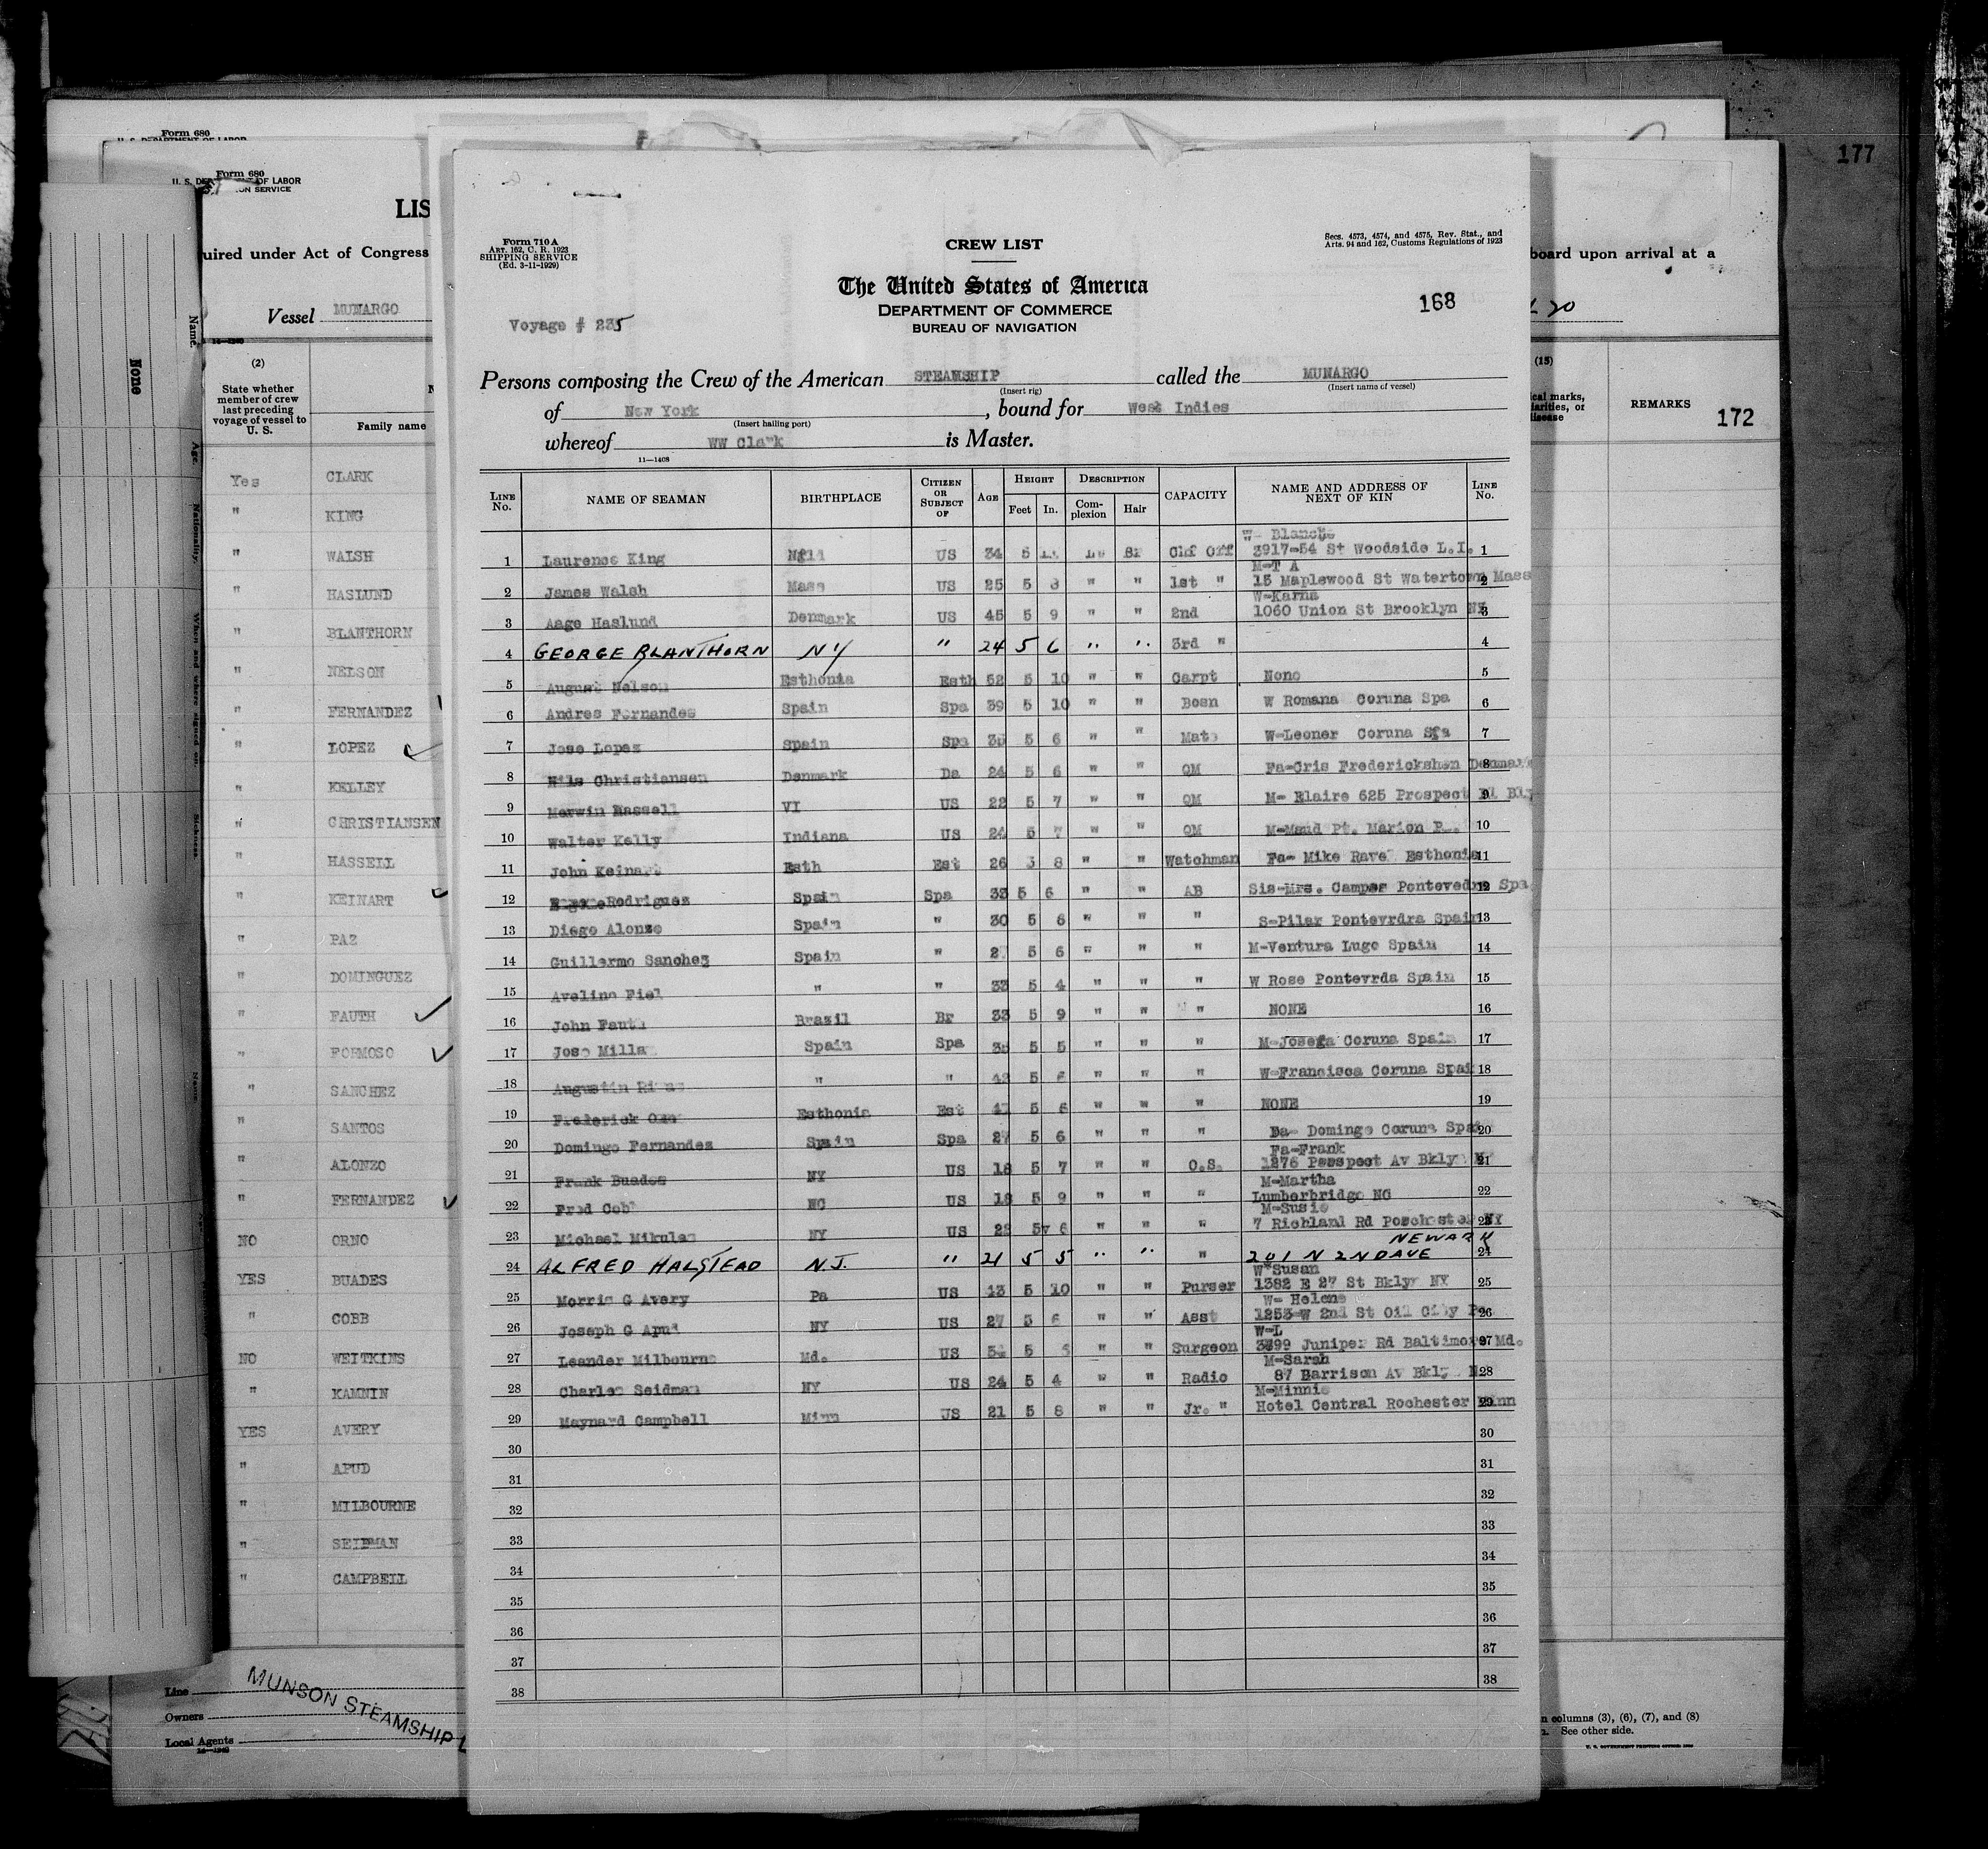 177
Form 680
U. S. DEPARTMENT OF LABOR
Form 680
U. S. DEPARTMENT OF LABOR
ION SERVICE
LIS
uired under Act of Congress
board upon arrival at a
Vessel MUNARGO
20
(2)
State whether
member of crew
last preceding
voyage of vessel to
U. S.
Family name
(15)
ical marks,
larities, or
disease
REMARKS
172
None
Name
Age
Nationality
When and where signed on.
Sickness.
Yes CLARK
" KING
" WALSH
" HASLUND
" BLANTHORN
" NELSON
" FERNANDEZ
" LOPEZ
" KELLEY
" CHRISTIANSEN
" HASSELL
" KEINART
" PAZ
" DOMINGUEZ
" FAUTH
" FORMOSO
" SANCHEZ
" SANTOS
" ALONZO
" FERNANDEZ
NO ORNO
YES BUADES
" COBB
NO WEITKINS
" KAMNIN
YES AVERY
" APUD
" MILBOURNE
" SEIDMAN
" CAMPBELL
Line
Owners
Local Agents
MUNSON STEAMSHIP L
n columns (3), (6), (7), and (8)
See other side.
U. S. GOVERNMENT PRINTING OFFICE
Form 710 A
ART. 162, C. R. 1923
SHIPPING SERVICE
(Ed. 3-11-1929)
CREW LIST
Secs. 4573, 4574, and 4575, Rev. Stat., and
Arts. 94 and 162, Customs Regulations of 1923
The United States of America
DEPARTMENT OF COMMERCE
BUREAU OF NAVIGATION
168
Voyage # 235
Persons composing the Crew of the American STEAMSHIP called the MUNARGO
(Insert rig) (Insert name of vessel)
of New York, bound for West Indies
(Insert hailing port)
whereof WW Clark is Master.
11—1408
LINE No. NAME OF SEAMAN BIRTHPLACE CITIZEN OR SUBJECT OF AGE HEIGHT Feet In. DESCRIPTION Complexion Hair CAPACITY NAME AND ADDRESS OF NEXT OF KIN LINE No.
W- Blanche
1 Laurence King Nfld US 34 5 Br Chf Off 3917-54 St Woodside L.I. 1
M-T A
2 James Walsh Mass US 25 5 8 " " 1st " 15 Maplewood St Watertown Mass 2
W-Karna
3 Aage Haslund Denmark US 45 5 9 " " 2nd 1060 Union St Brooklyn NY 3
4 GEORGE BLANTHORN NY " 24 5 6 " " 3rd " 4
5 August Nelson Esthonia Esth 52 5 10 " " Carpt None 5
6 Andres Fernandes Spain Spa 39 5 10 " " Bosn W Romana Coruna Spa 6
7 Jose Lopez Spain Spa 35 5 6 " " Mate W-Leonor Coruna Spa 7
8 Nils Christiansen Denmark Da 24 5 6 " " QM Fa-Cris Frederickshen Denmark 8
9 Merwin Hassell VI US 22 5 7 " " QM M- Elaire 625 Prospect Pl 9
10 Walter Kelly Indiana US 24 5 7 " " QM M-Maud Pt. Marion P 10
11 John Keinart Esth Est 26 5 8 " " Watchman Fa- Mike Ravel Esthonia 11
12 Eugene Rodriguez Spain Spa 33 5 6 " " AB Sis-Mrs. Campos Pontevedra Spa 12
13 Diego Alonzo Spain " 30 5 6 " " " S-Pilar Pontevrdra Spain 13
14 Guillermo Sanchez Spain " 27 5 6 " " " M-Ventura Lugo Spain 14
15 Avelino Fiel " " 33 5 4 " " " W Rose Pontevrda Spain 15
16 John Fauth Brazil Br 33 5 9 " " " NONE 16
17 Jose Milla Spain Spa 35 5 5 " " " M-Josefa Coruna Spain 17
18 Augustin Rivas " " 43 5 6 " " " W-Francisca Coruna Spain 18
19 Frederick Esthonia Est 47 5 6 " " " NONE 19
20 Domingo Fernandez Spain Spa 27 5 6 " " " Fa- Domingo Coruna Spa 20
Fa-Frank
21 Frank Buades NY US 18 5 7 " " O.S. 1276 Prospect Av Bklyn 21
M-Martha
22 Fred Cobb NC US 18 5 9 " " " Lumberbridge NC 22
M-Susie
23 Michael Mikulas NY US 22 5 6 " " " 7 Richland Rd Porchester NY 23
NEWARK
24 ALFRED HALSTEAD N.J. " 21 5 5 " " " 201 N 2ND AVE 24
W-Susan
25 Morris G Avery Pa US 43 5 10 " " Purser 1382 E 27 St Bklyn NY 25
W- Helene
26 Joseph G Apud NY US 27 5 6 " " Asst 1253-W 2nd St Oil City Pa 26
W-L
27 Leander Milbourne Md. US 54 5 " " Surgeon 3799 Juniper Rd Baltimore Md. 27
M-Sarah
28 Charles Seidman NY US 24 5 4 " " Radio 87 Harrison Av Bkly N 28
M-Minnie
29 Maynard Campbell Minn US 21 5 8 " " Jr. " Hotel Central Rochester Minn 29
30 30
31 31
32 32
33 33
34 34
35 35
36 36
37 37
38 38